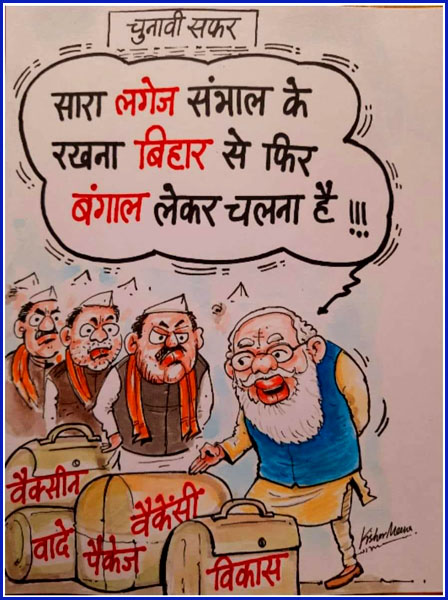 चुनावी सफर
सारा लगेज संभाल के
रखना बिहार से फिर
बंगाल लेकर चलना है !!!
वैक्सीन
वादे
पैकेज
वैकेंसी
विकास